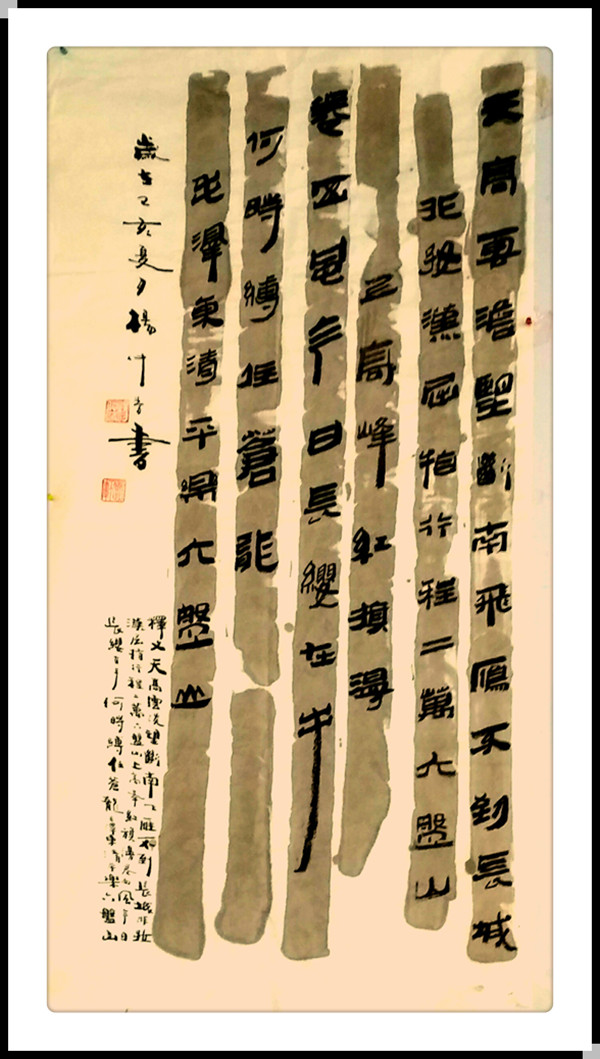 天高雲澹望斷南飛鴈不到長城
非好漢屈指行程二萬六盤山
上高峰紅旗漫
卷西風今日長纓在手
何時縛住蒼龍
毛澤東清平樂六盤山
歲在己亥夏月楊書
釋文天高雲淡望斷南飞雁不到長城非好
漢屈指行程二萬六盤山上高峰紅旗漫卷西風今日
長纓在手何時縛住蒼龍毛澤東清平樂六盤山